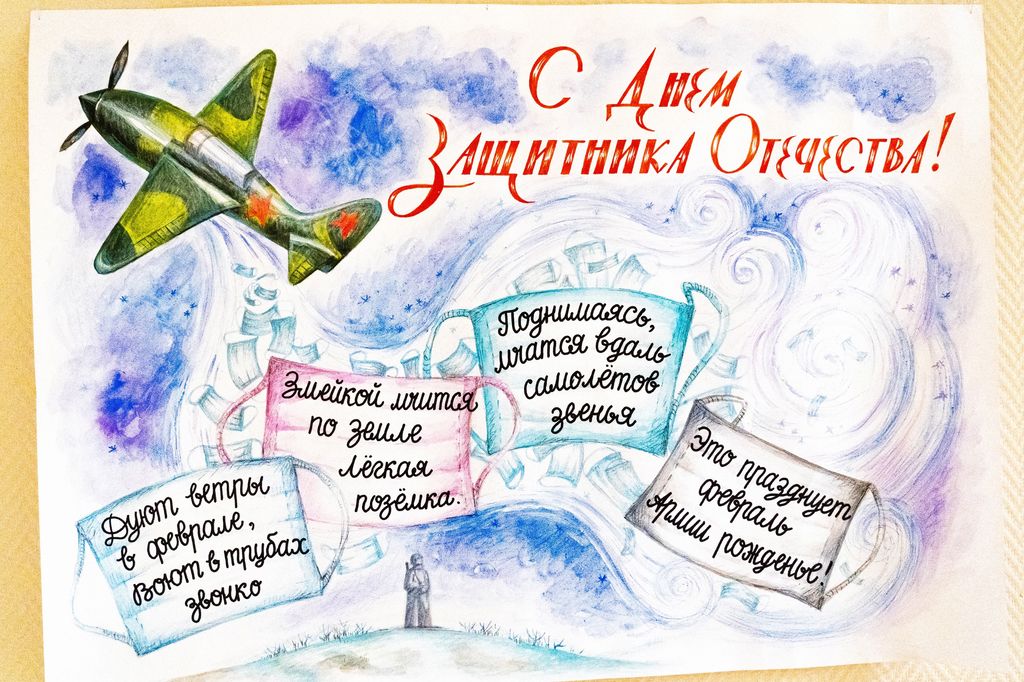 С Днем
Защитника Отечества!
Дуют ветры
в феврале,
Воют в трубах
звонко
Змейкой мчится
по земле
лёгкая
позёмка.
Поднимаясь,
мчатся вдаль
самолётов
звенья
Это празднует
февраль
Армии рожденье!